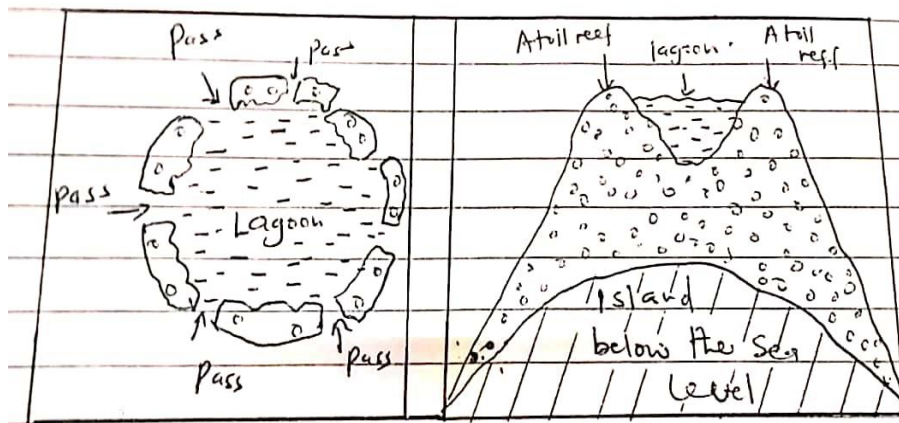 Pass
Pass
Pass
Lagoon
Pass
Pass
Atoll reef
lagoon
Atoll
reef
Island
below the Sea
Level